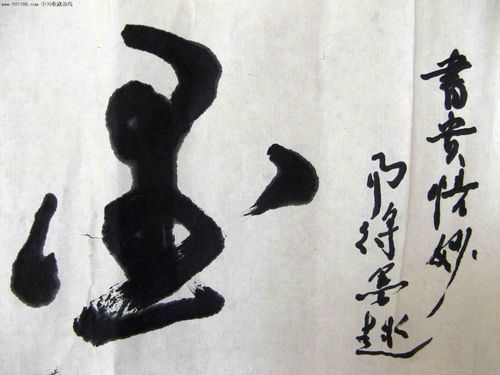 www.997788.com 中国收藏热线
書貴悟妙
乃得墨趣